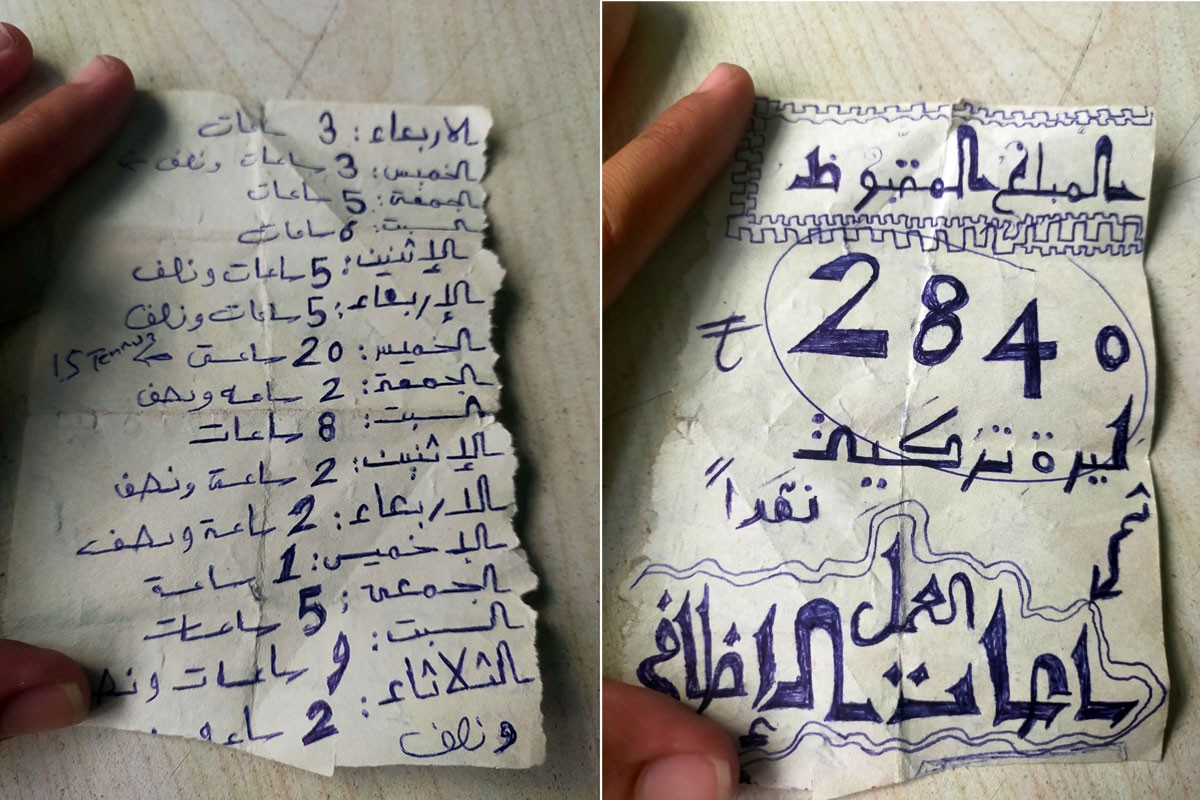 الاربعاء: 3 ساعات
الخميس: 3 ساعات ونصف
الجمعة: 5 ساعات
السبت: 6 ساعات
الإثنين: 5 ساعات ونصف
الإربعاء: 5 ساعات ونصف
الخميس: 20 ساعة ← 15 Temmuz
الجمعة: 2 ساعه ونصف
السبت: 8 ساعات
الإثنين: 2 ساعة ونصف
الاربعاء: 2 ساعة ونصف
الإخميس: 1 ساعة
الجمعة: 5 ساعات
السبت: و ساعات
الثلاثاء: 2
ونصف
المبلغ المقبوظ
2840 ₺
ليرة تركية
نقداً
ساعات العمل الاظافي